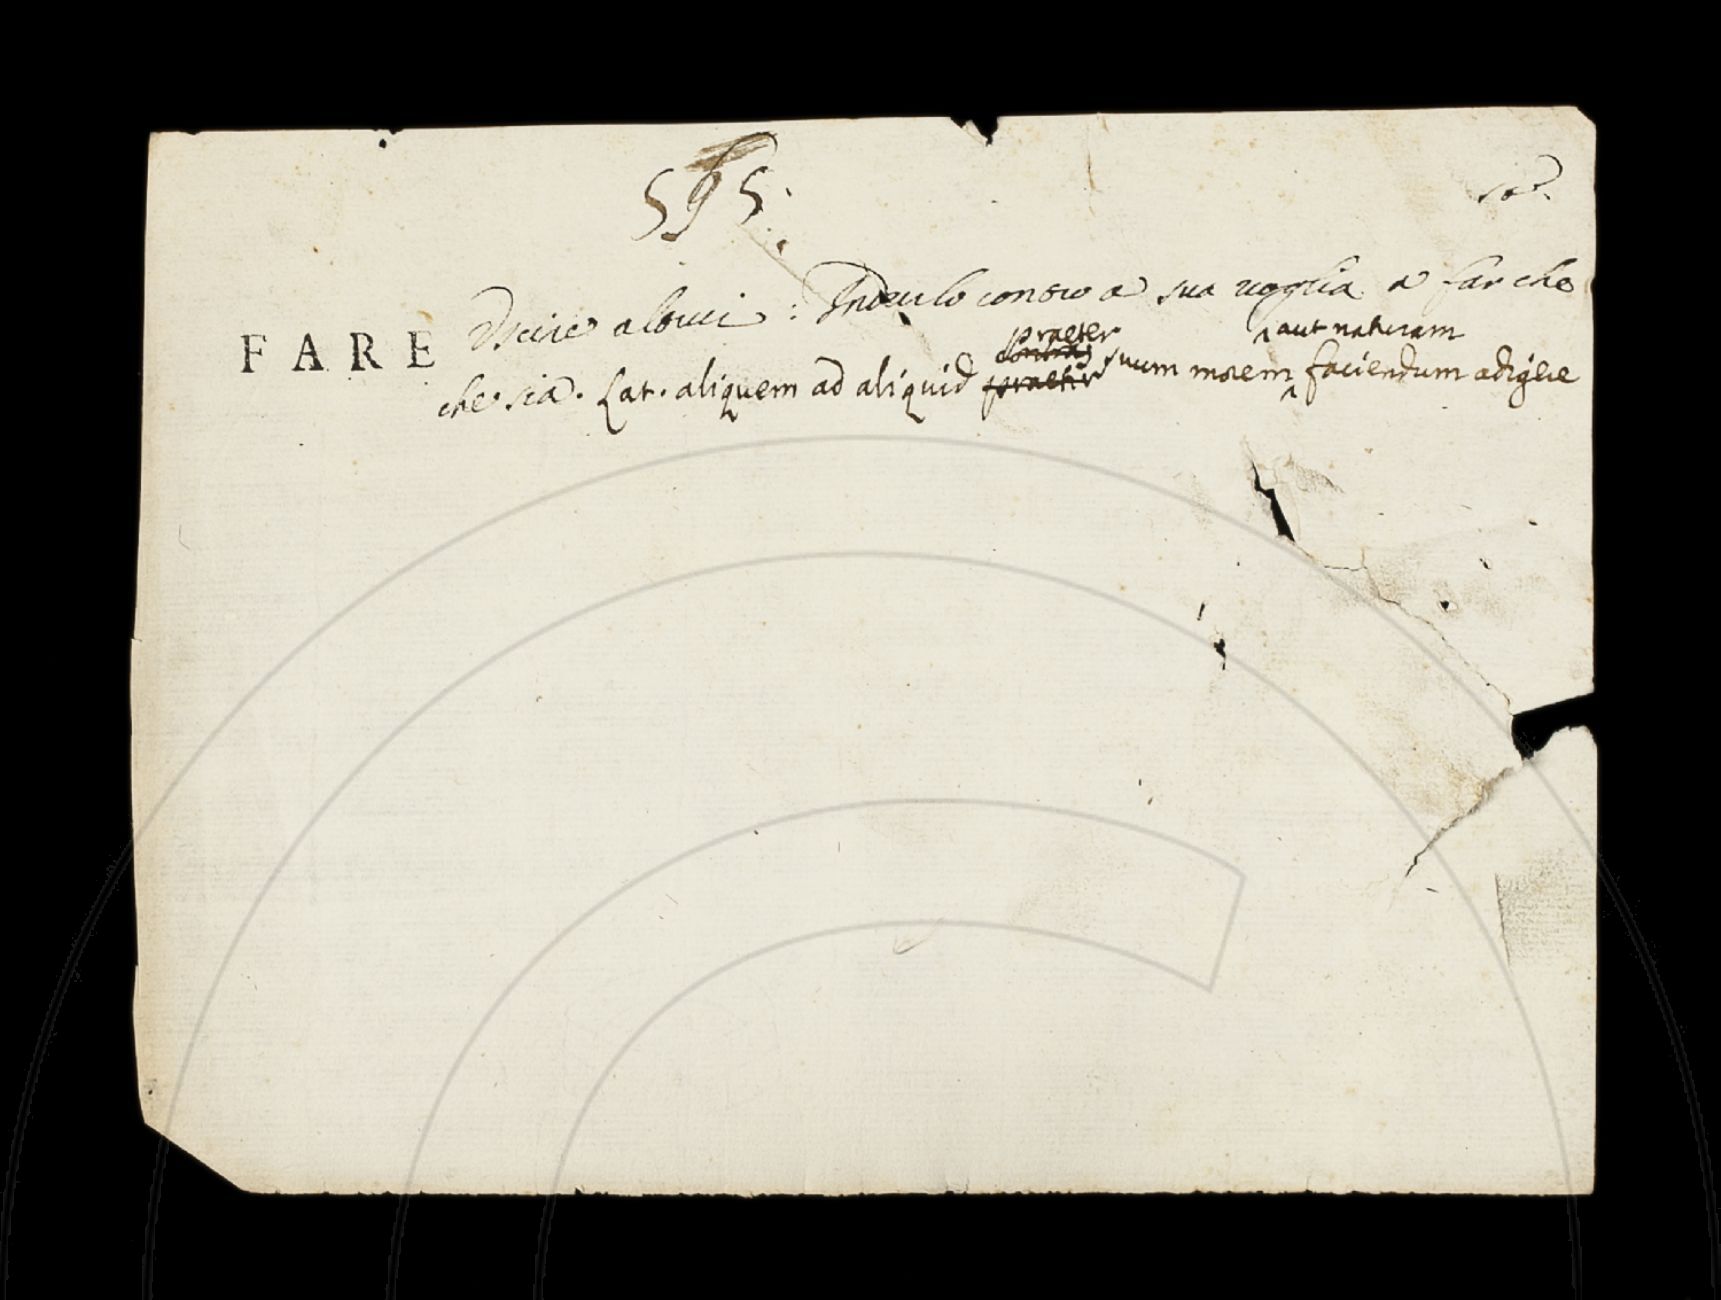 595.
FARE Uscire altrui: Indurlo contro a sua voglia a far che
praeter
aut naturam
contra
che sia. Lat. aliquem ad aliquid praeter suum morem faciendum adigere